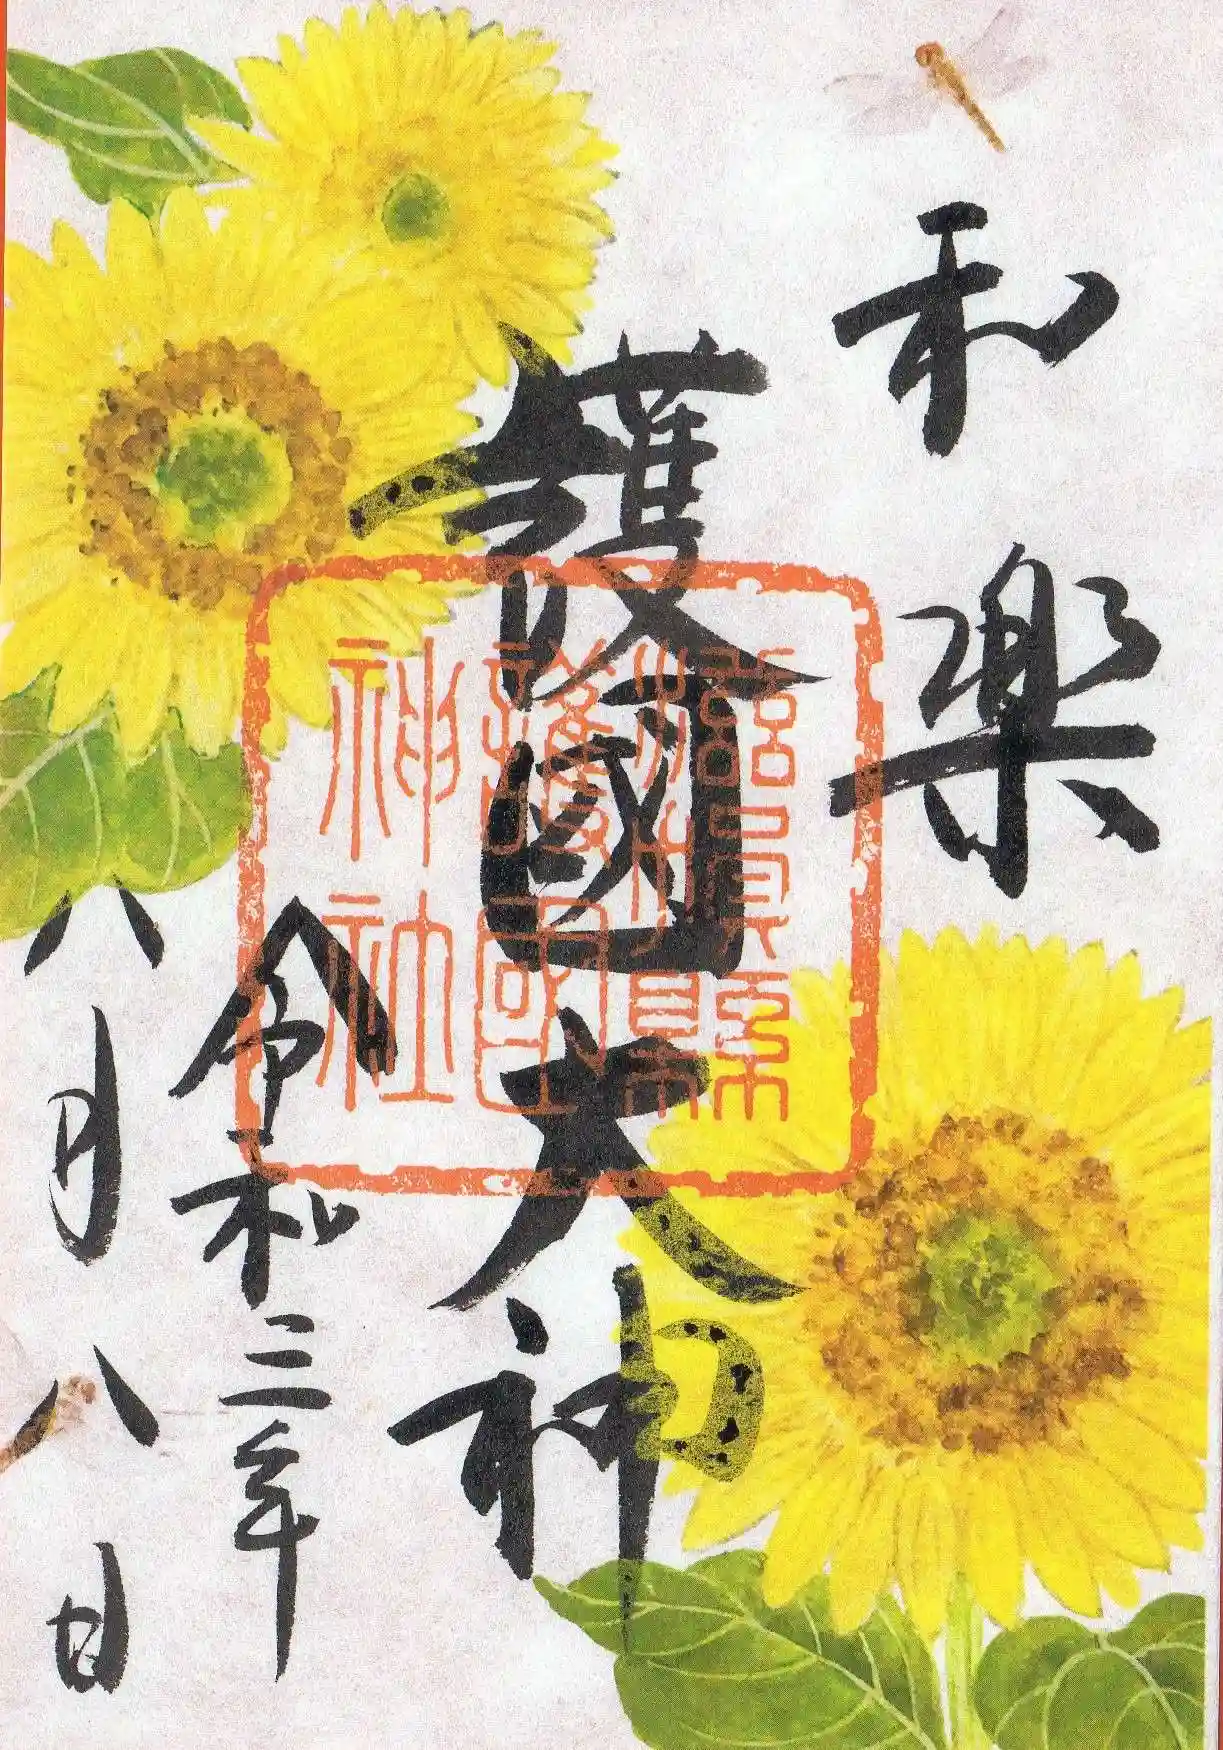 和樂
護國大神
令和三年
八月八日
護國
神社